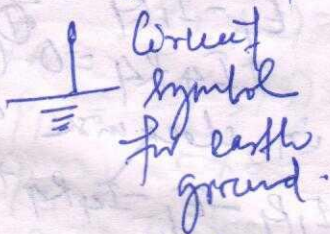 Circuit
symbol
for earth
ground.